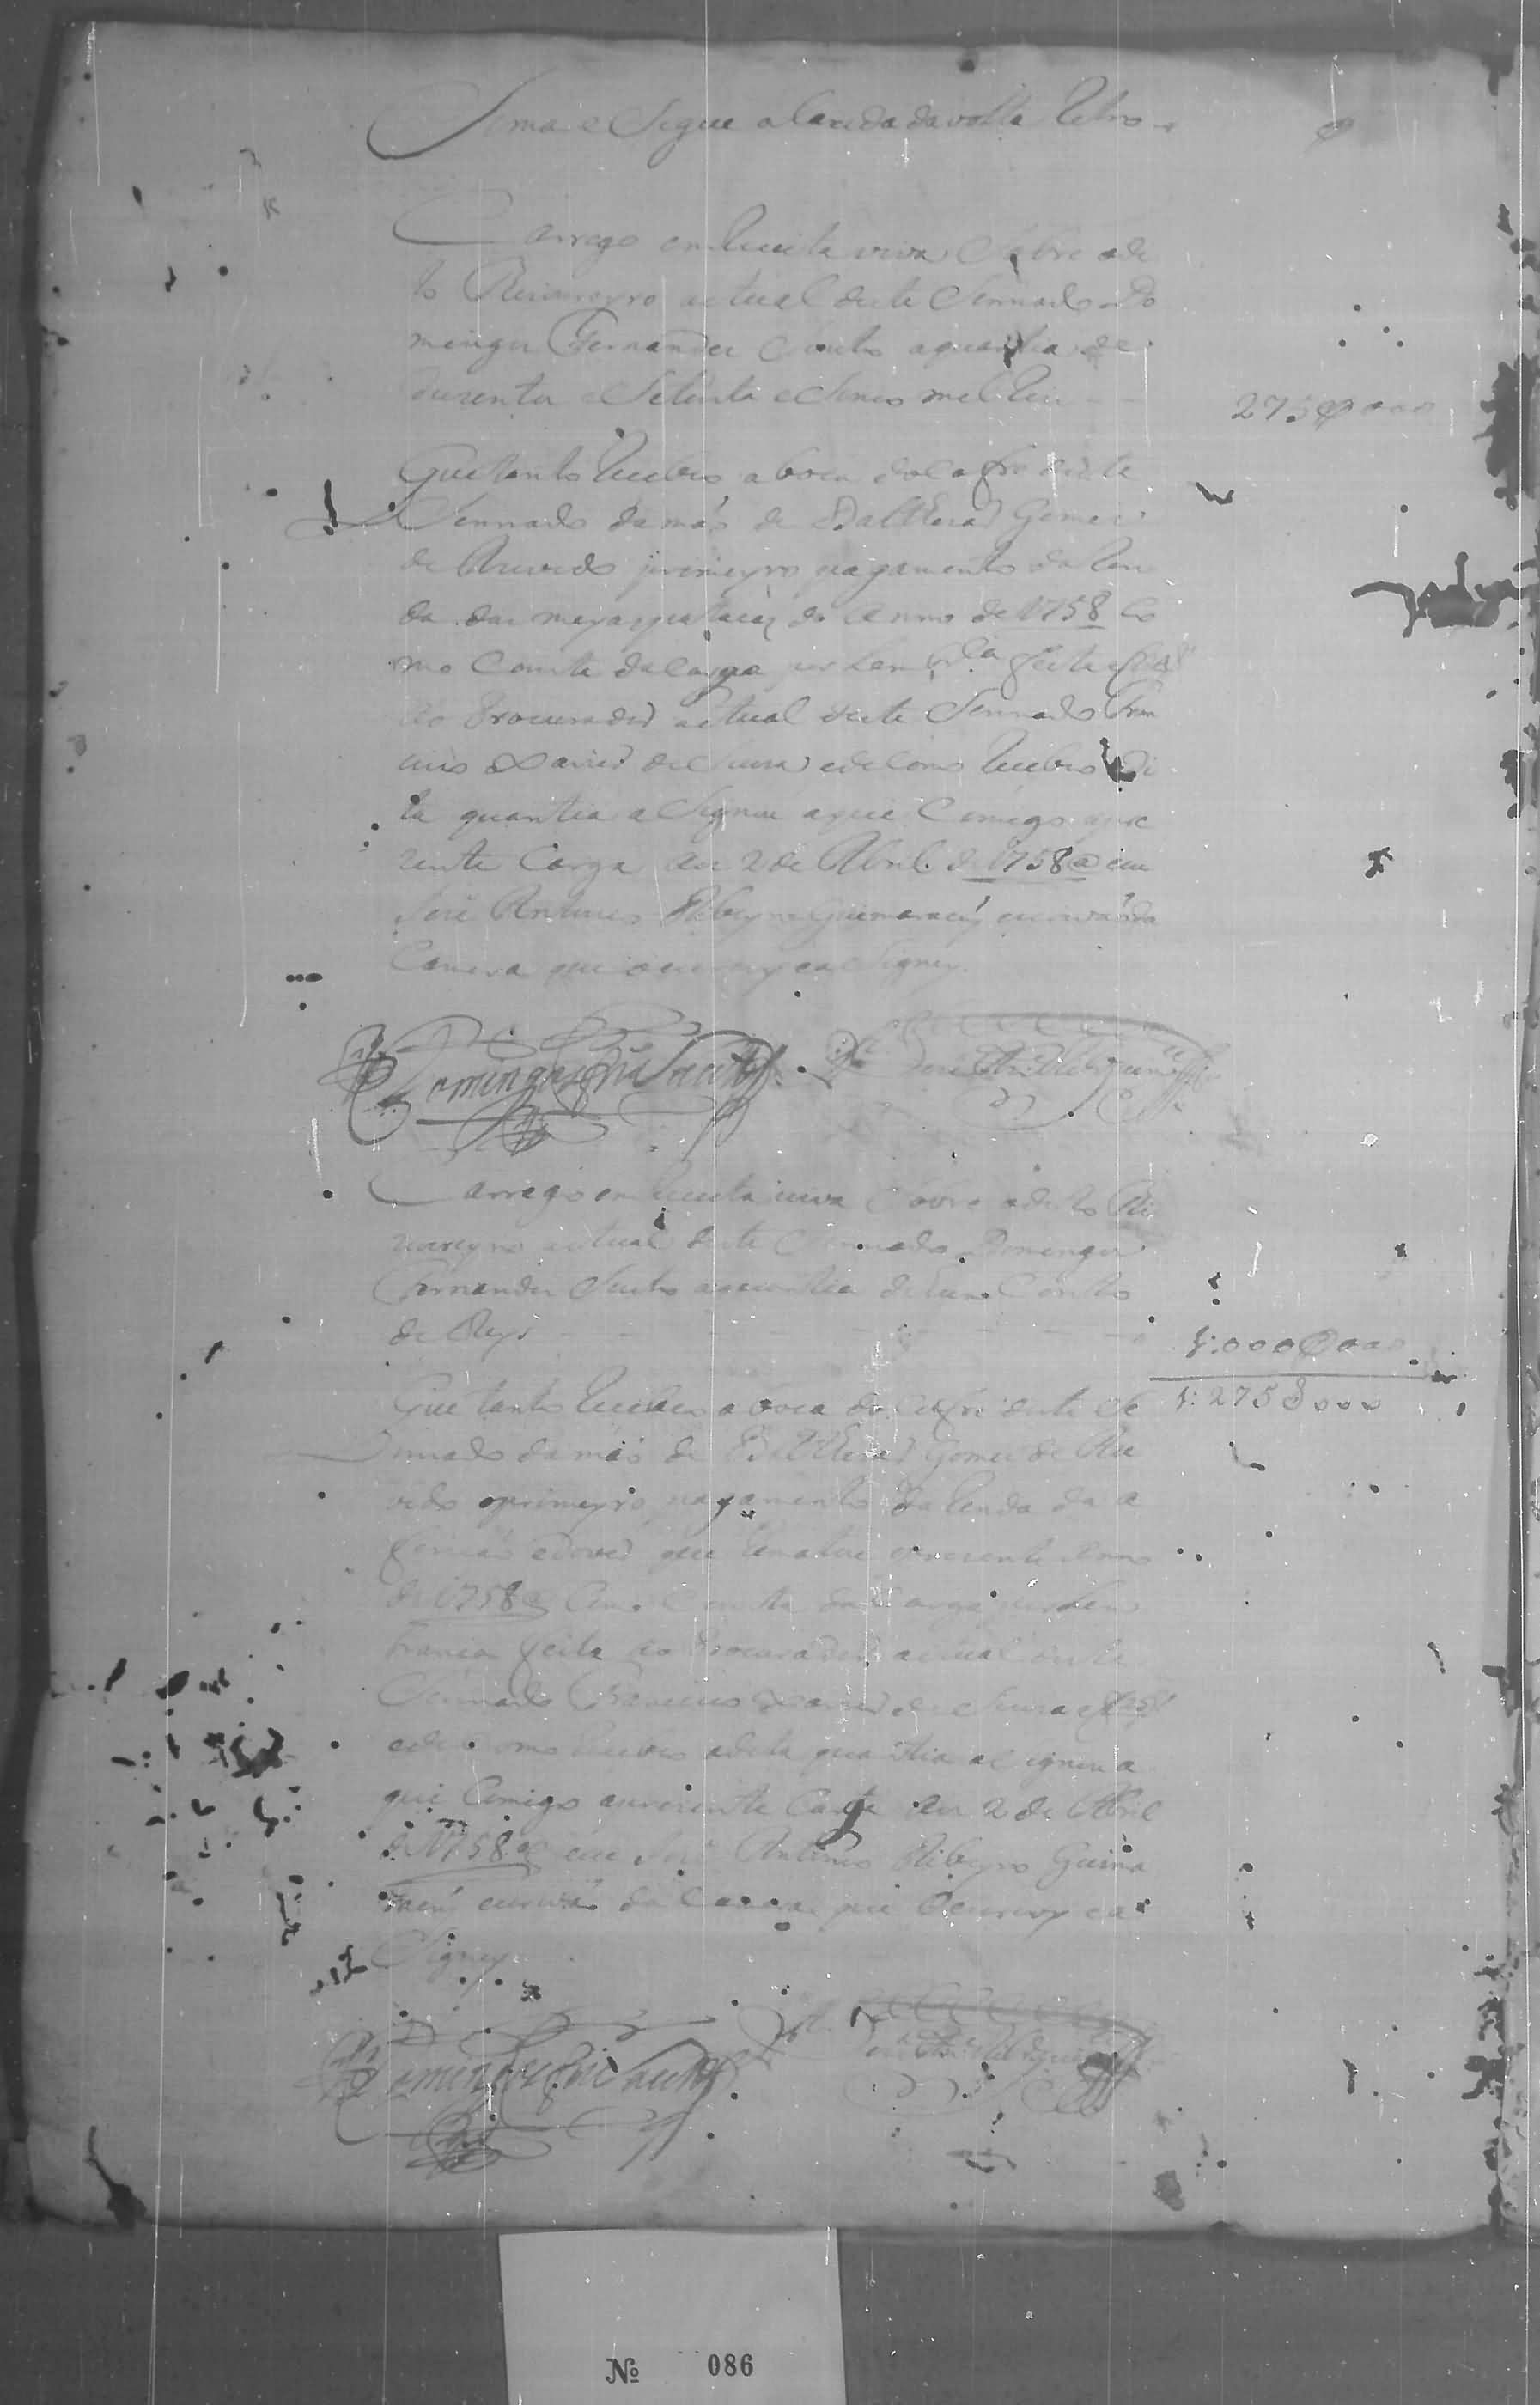 Soma e Segue a Carga da volta Retro
Carrego em Receita viva Sobre o di
to Thizoureyro actual deste Sennado Do
mingos Fernandes Souto a quantia de
duzentos e Setenta e Sinco mil Reis
275$000
Que tanto Recebeo a boca do Cofre deste
Sennado da máo de Balthezar Gomes
de Azevedo primeyro pagamento da Ren
da das meyas patacas do Anno de 1758 Co
mo Consta da Carga por Lembr.ca feita
ao Procurador actual deste Sennado Fran
cisco Xavier de Souza e de Como Recebeo a di
ta quantia aSignou aque Comigo apre
zente Carga aos 2 de Abril de 1758 @ eu
José Antonio Ribeyro Guimaraeñs escrivaó da
Camera que o escrevy e aSigney.
Domingos Frz Soutto
José Anto Ribro Guims
Carrego em Receita viva Sobre o dito Thi
zoureyro actual deste Sennado Domingos
Fernandes Souto a quantia de hum Conto
de Reys
1:000$000
1:275$000
Que tanto Recebeo a boca do Cofre deste Se
nnado da máo de Balthezar Gomes de Aze
vedo o primeyro pagamento da Renda da a
feriçaó e ver que Rematou o prezente Anno
de 1758 @ Como Consta da Carga por Lem
brança feita ao Procurador actual deste
Sennado Francisco Xavier de Souza
e de Como Recebeo a dita quantia aSignou a
qui Comigo a prezente Carga aos 2 de Abril
de 1758 @ eu José Antonio Ribeyro Guima
raeñs escrivaó da Camera que o escrevy e a
Signey
Domingos Frz Soutto
José Anto Ribro Guims
№ 086